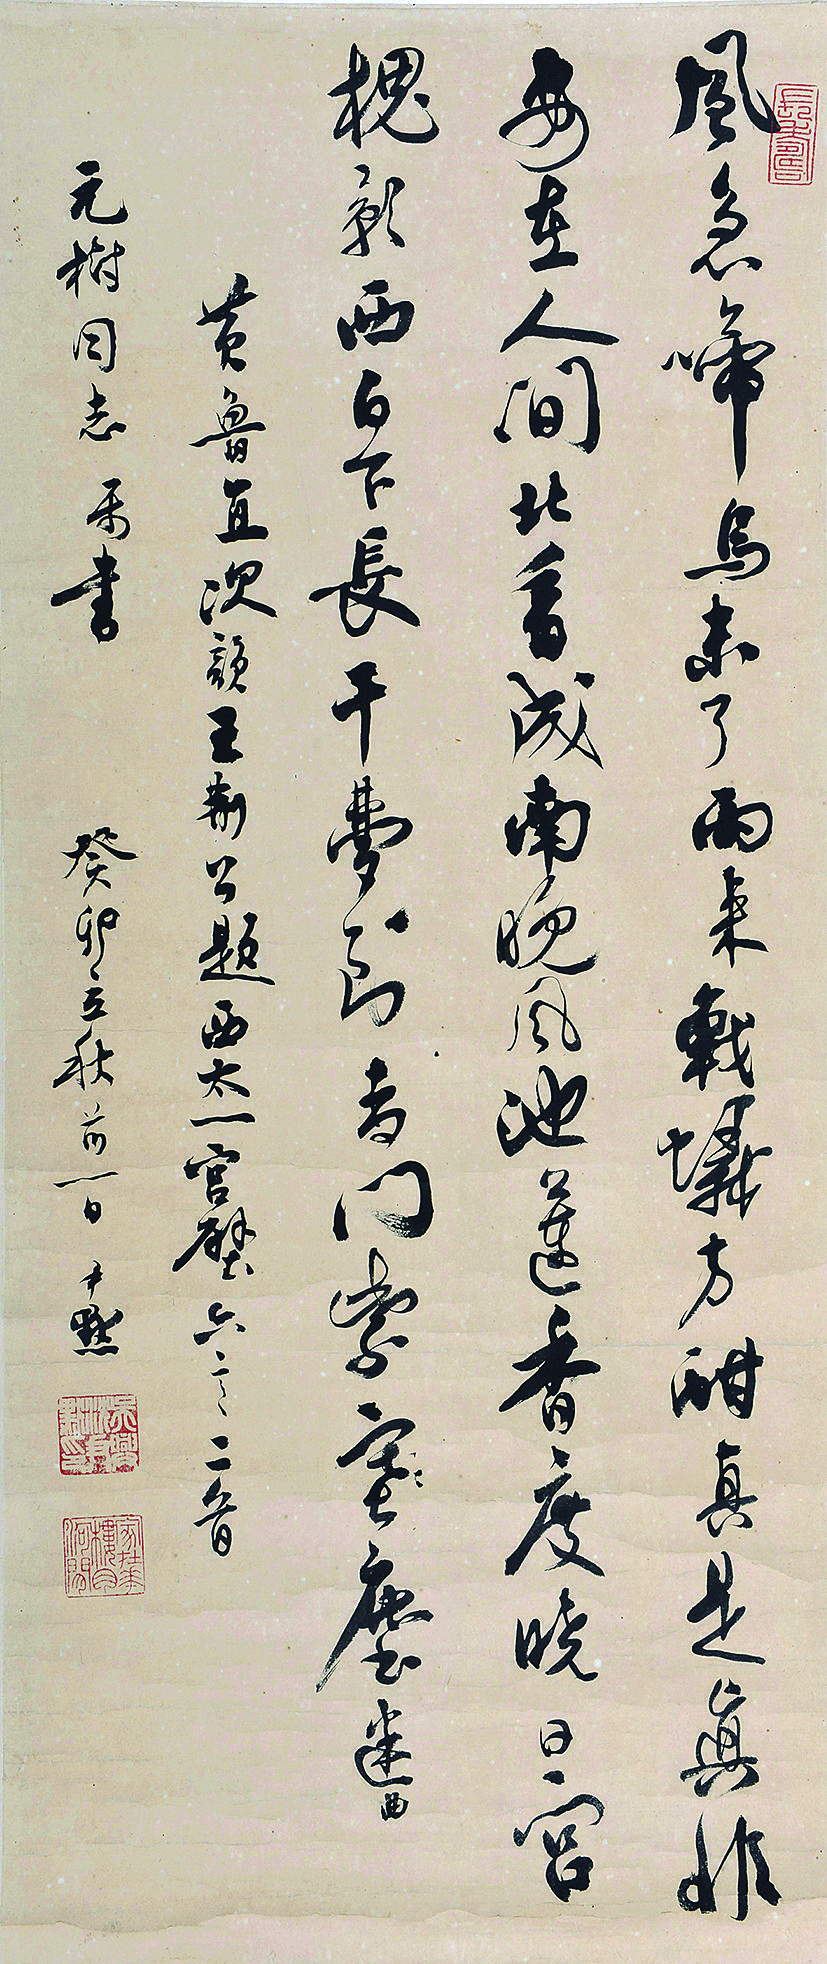 風急啼烏未了雨來戰蟻方酣真是眞非
安在人間北看成南晚風池蓮香度曉日宮
槐影西白下長干夢到青門紫塞塵迷曲
黄魯直次韻王荊公題西太一宮壁六言二首
元樹同志属書 癸卯立秋前一日 尹默
吳興沈尹默印